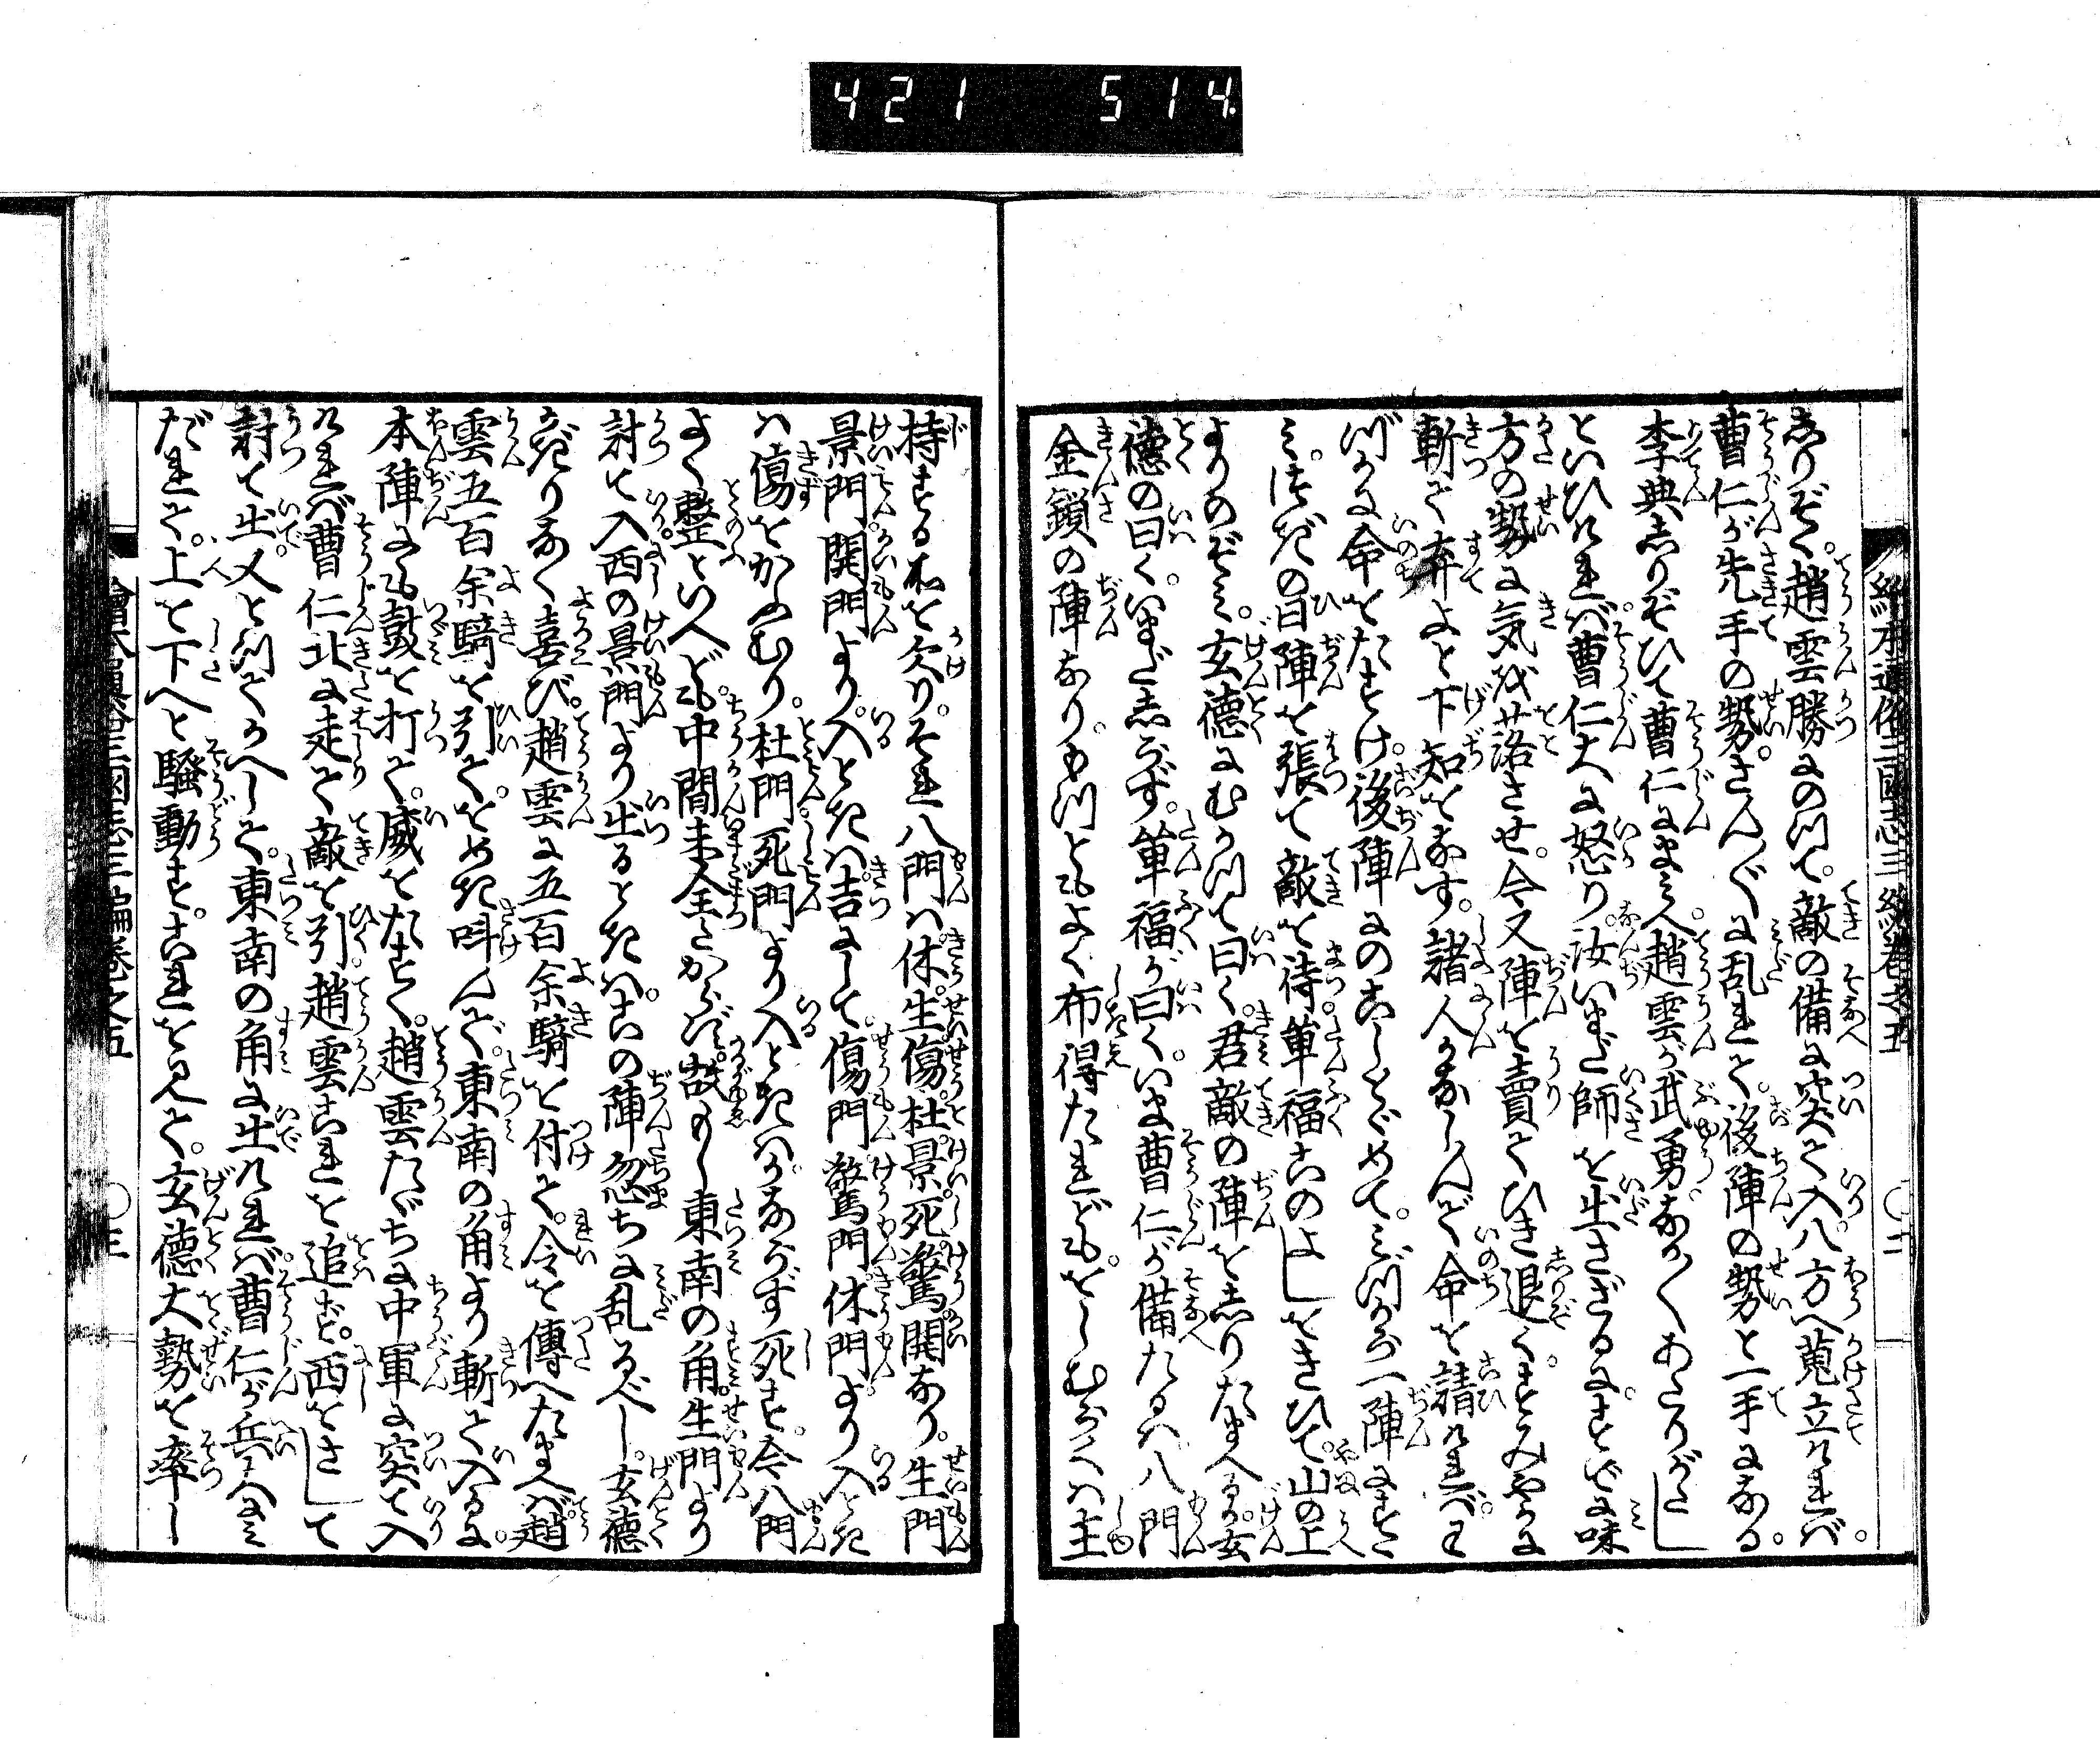 421 514
繪本通俗三國志三編卷之五 〇二
しりぞく。趙雲勝にのつて。敵の備に突て入八方へ蒐立ければ。
曹仁が先手の勢。さんぐに乱れて。後陣の勢と一手になる。
李典しりぞひて曹仁にまみへ。趙雲が武勇なかくあたりがたし
といひければ。曹仁大に怒り。汝いまだ師を出さざるに。すでに味
方の勢に気を落させ。今又陣を賣てひき退く。すみやかに
斬て弃よと下知をなす。諸人かなしんで命を請ければ。わ
づかに命をたすけ。後陣にのこしとゞめて。みづから一陣にすゝ
み。次の日陣を張て敵を待。單福このよしをきひて。山の上
よりのぞみ。玄德にむかつて曰く。君敵の陣をしりたまへるか。玄
德の曰く。いまだしらず。單福が曰く。いま曹仁が備たるハ八門
金鎖の陣なり。もつともよく布得たれども。をしむらくハ主
持する本を欠り。それ八門ハ休。生傷。杜。景。死。驚開なり。生門
景門開門より。入ときハ吉にして。傷門驚門休門より入とき
ハ傷をかふむり。杜門死門より入ときハかならず死す。今八門
よく整といへども。中間未全たからず。故もし東南の角。生門より
討て入西の景門より出るときハ。この陣忽ちに乱るべし。玄德
かぎりなく喜び。趙雲に五百余騎を付て。令を傳へたまへバ。趙
雲五百余騎を引て。をめき叫んで。東南の角より斬て入るに。
本陣にも鼓を打て。威をたすく。趙雲たゞちに中軍に突て入
ければ曹仁北に走て敵を引。趙雲これを追ず。西をさして
討て出。又とつてかへして。東南の角に出ければ。曹仁が兵大にみ
だれて。上を下へと騷動す。これを見て。玄德大勢を率し
繪本通俗三國志三編卷之五 〇三